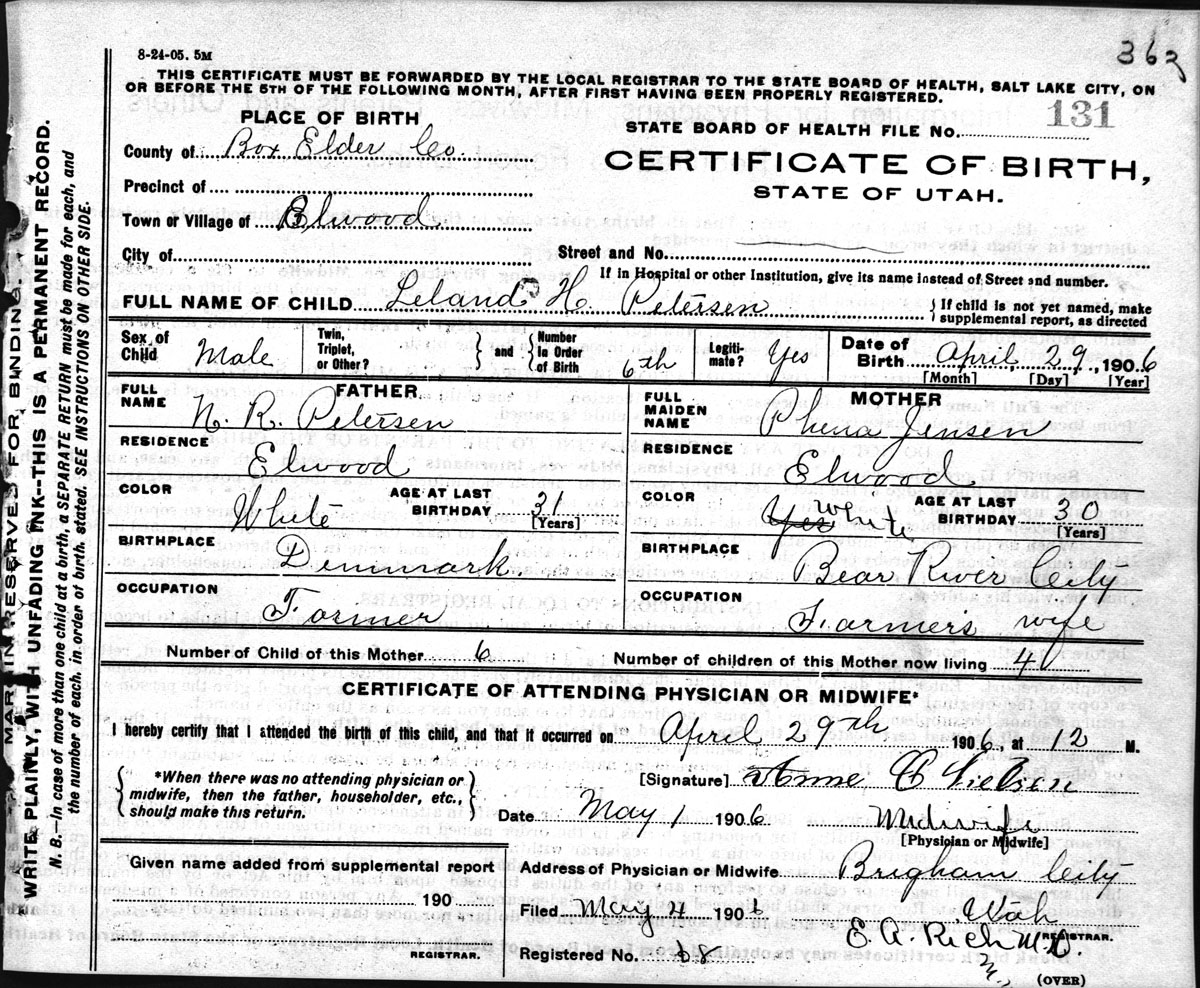 8-24-05. 5M
362
THIS CERTIFICATE MUST BE FORWARDED BY THE LOCAL REGISTRAR TO THE STATE BOARD OF HEALTH, SALT LAKE CITY, ON
OR BEFORE THE 5TH OF THE FOLLOWING MONTH, AFTER FIRST HAVING BEEN PROPERLY REGISTERED.
PLACE OF BIRTH
STATE BOARD OF HEALTH FILE No. 131
County of Box Elder Co.
CERTIFICATE OF BIRTH,
STATE OF UTAH.
Precinct of
Town or Village of Elwood
City of
Street and No.
If in Hospital or other Institution, give its name instead of Street and number.
FULL NAME OF CHILD Leland H. Petersen
{ If child is not yet named, make
supplemental report, as directed
Sex of Child Male
Twin, Triplet, or Other?
} and { Number in Order of Birth 6th
Legitimate? Yes
Date of Birth April, 29, 1906
[Month] [Day] [Year]
FATHER
FULL NAME N. R. Petersen
RESIDENCE Elwood
COLOR White
AGE AT LAST BIRTHDAY 31 [Years]
BIRTHPLACE Denmark
OCCUPATION Farmer
MOTHER
FULL MAIDEN NAME Phena Jensen
RESIDENCE Elwood
COLOR Yes white
AGE AT LAST BIRTHDAY 30 [Years]
BIRTHPLACE Bear River City
OCCUPATION Farmers wife
Number of Child of this Mother 6
Number of children of this Mother now living 4
CERTIFICATE OF ATTENDING PHYSICIAN OR MIDWIFE*
I hereby certify that I attended the birth of this child, and that it occurred on April 29th 1906, at 12 M.
{ *When there was no attending physician or
midwife, then the father, householder, etc.,
should make this return. }
[Signature] Anne C Nielsen
Date May 1 1906 Midwife
[Physician or Midwife]
Given name added from supplemental report
190
REGISTRAR.
Address of Physician or Midwife Brigham City
Utah
Filed May 4 1906
E. A. Rich M.D.
REGISTRAR.
Registered No. 68
(OVER)
MARGIN RESERVED FOR BINDING.
WRITE PLAINLY, WITH UNFADING INK--THIS IS A PERMANENT RECORD.
N. B. In case of more than one child at a birth, a SEPARATE RETURN must be made for each, and
the number of each, in order of birth, stated. SEE INSTRUCTIONS ON OTHER SIDE.